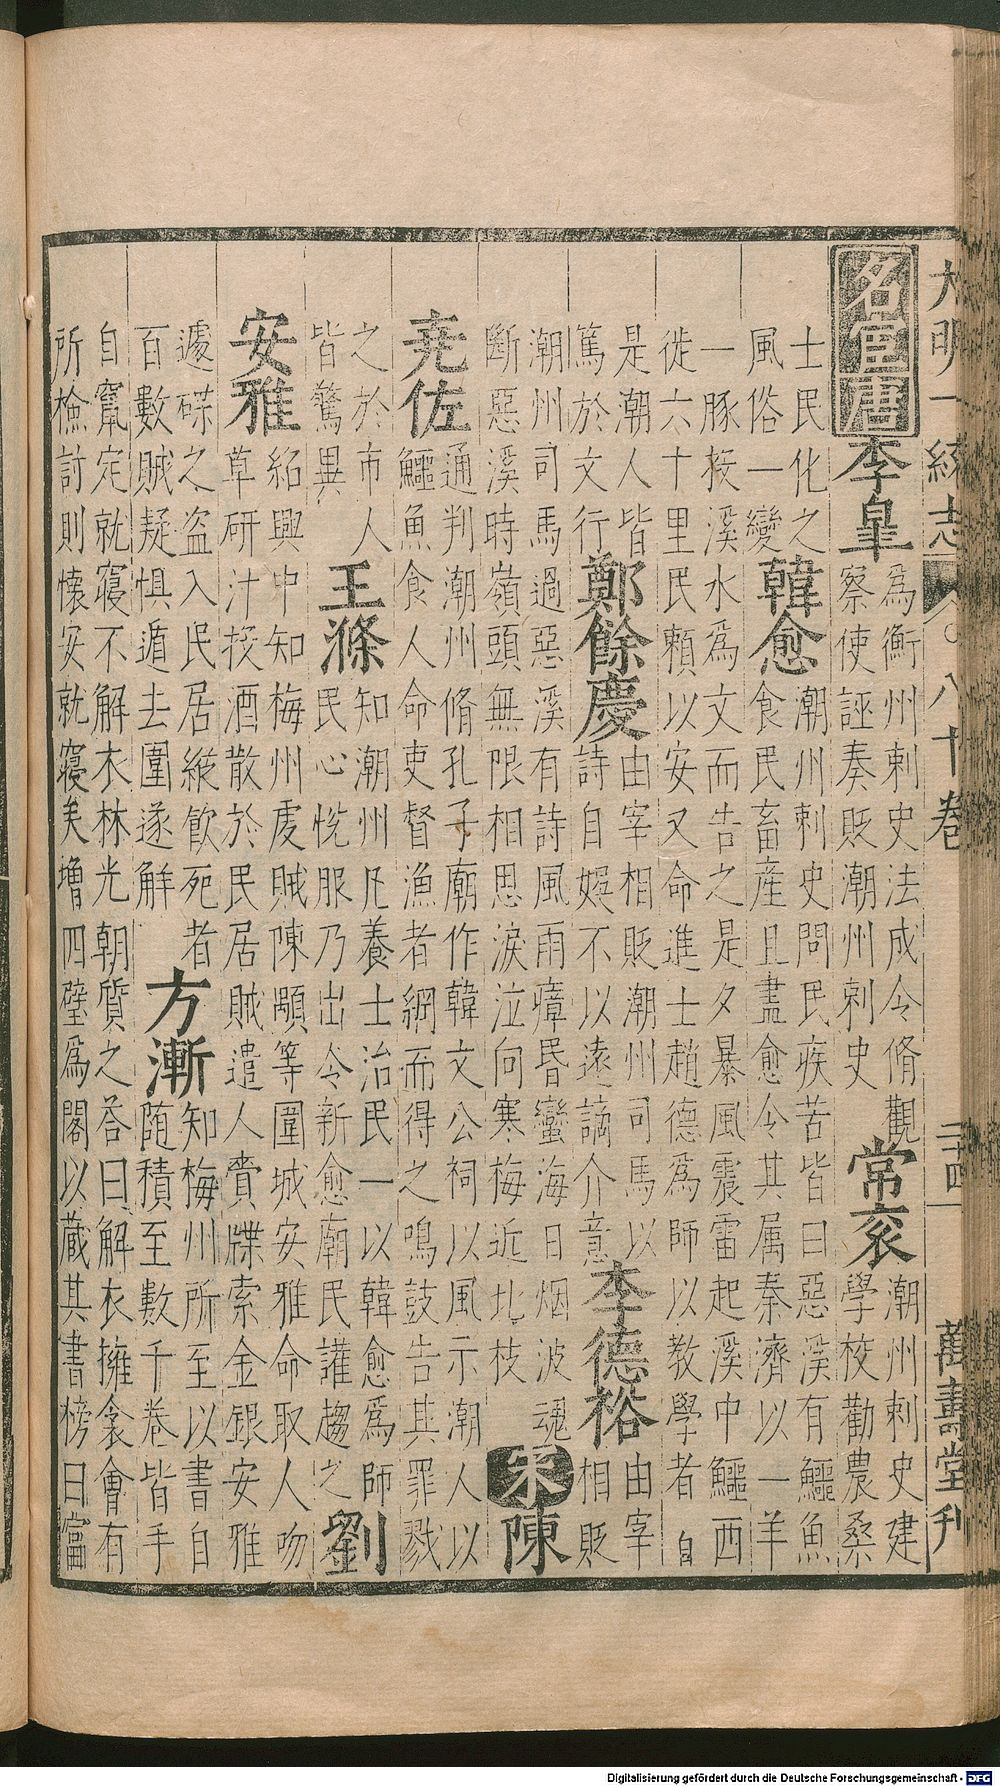 大明一統志
八十卷
二十四
萬壽堂刊
名宦唐
李皐
為衡州刺史法成令脩觀
察使誣奏貶潮州刺史
常袞
潮州刺史建
學校勸農桑
士民化之
風俗一變
韓愈
潮州刺史問民疾苦皆曰惡溪有鱷魚
食民畜產且盡愈令其属秦濟以一羊
一豚投溪水為文而告之是夕暴風震雷起溪中鱷西
徙六十里民賴以安又命進士趙德為師以教學者自
是潮人皆
篤於文行
鄭餘慶
由宰相貶潮州司馬以
詩自娛不以遠謫介意
李德裕
由宰
相貶
潮州司馬過惡溪有詩風雨瘴昏蠻海日烟波魂
斷惡溪時嶺頭無限相思淚泣向寒梅近北枝
宋
陳
堯佐
通判潮州脩孔子廟作韓文公祠以風示潮人以
鱷魚食人命吏督漁者網而得之鳴鼓告其罪戮
之於市人
皆驚異
王滌
知潮州凡養士治民一以韓愈為師
民心悅服乃出令新愈廟民讙趨之
劉
安雅
紹興中知梅州虔賊陳顒等圍城安雅命取人吻
草研汁投酒散於民居賊遣人賫牒索金銀安雅
遽磔之盜入民居縱飲死者
百數賊疑惧遁去圍遂解
方漸
知梅州所至以書自
随積至數千卷皆手
自竄定就寢不解衣林光朝質之答曰解衣擁衾會有
所檢討則懷安就寢矣增四壁為閣以藏其書榜曰富
Digitalisierung gefördert durch die Deutsche Forschungsgemeinschaft - DFG